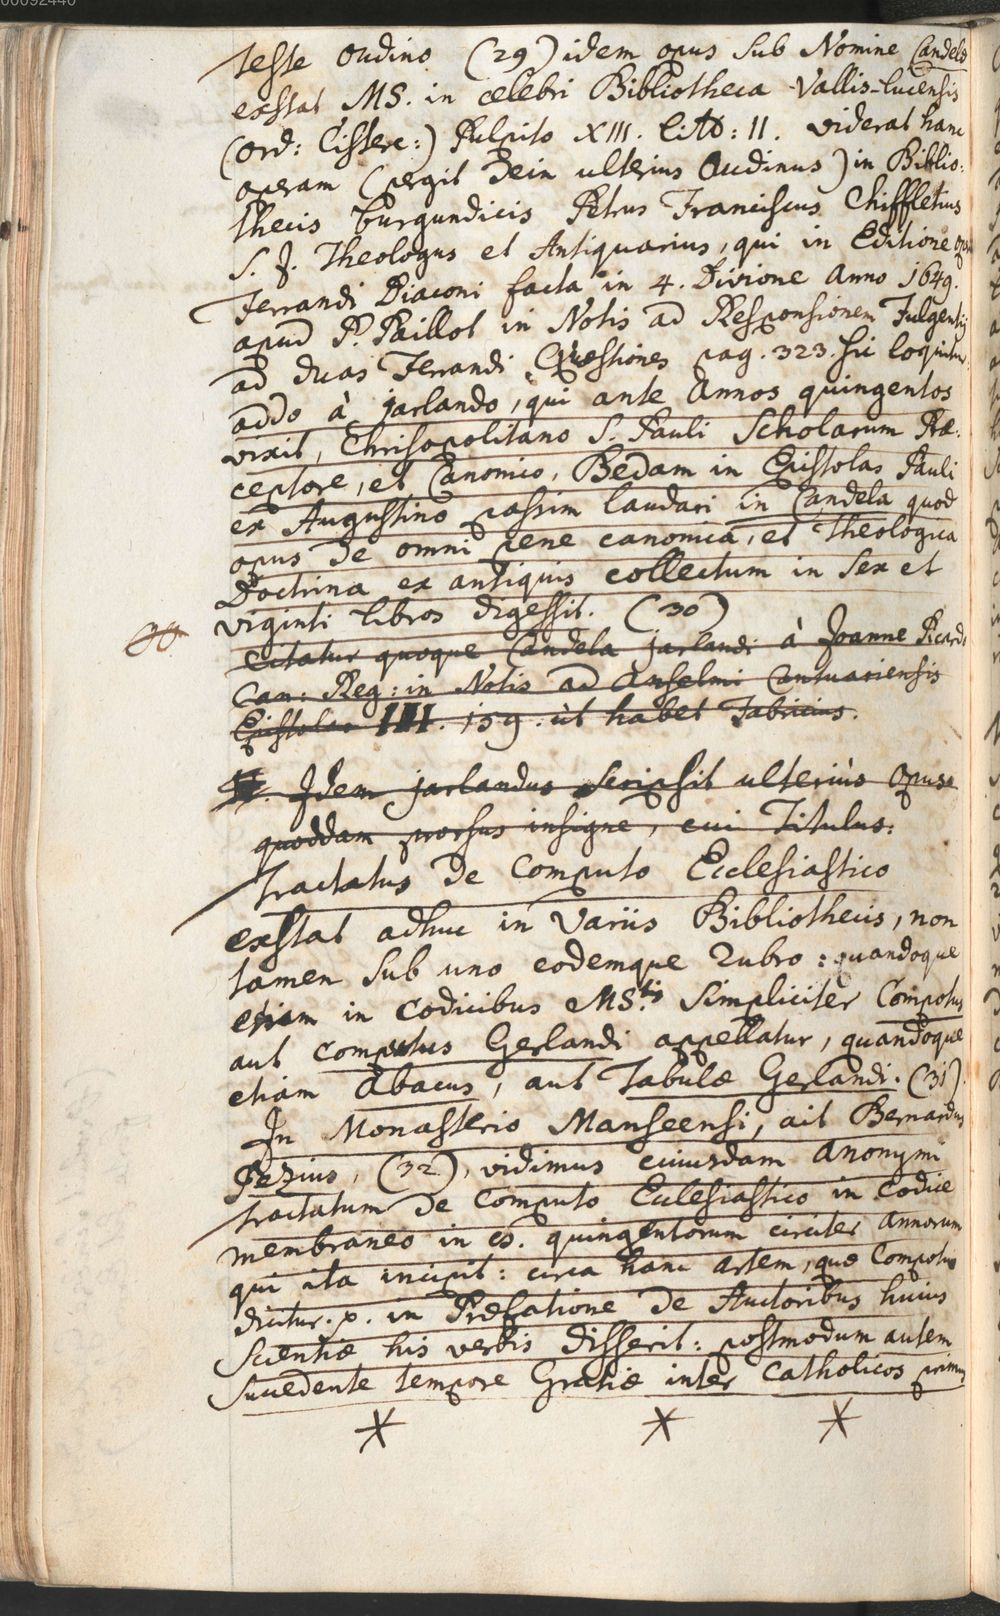 00092440
teste Oudino (29) idem opus sub Nomine Candela
exstat MS. in celebri Bibliotheca Vallis-lucensis
(Ord: Cisterc:) Pulpito XIII. Litt: 11. viderat hanc
operam (pergit Dein ulterius Oudinus) in Biblio:
thecis burgundicis Petrus Franciscus Chiffletius
S. J. Theologus et Antiquarius, qui in Editione opu
Ferrandi Diaconi facta in 4. Divione Anno 1649.
apud P. Paillot in Notis ad Responsionem Fulgentij
ad duas Ferrandi Quæstiones pag. 323. sic loquitur.
addo à jarlando, qui ante Annos quingentos
vixit, Chrisopolitano S. Pauli Scholarum Præ:
ceptore, et Canonico, Bedam in Epistolas Pauli
ex Augustino passim laudari in Candela quod
opus de omni pene canonica, et Theologica
Doctrina ex antiquis collectum in Sex et
viginti libros digessit. (30)
30
citatur quoque Candela jarlandi à Joanne Picardo
Can: Reg: in Notis ad Anselmi Cantuariensis
Epistolas III. 159. ùt habet Fabricius.
Idem jarlandus scripsit ulteriùs Opus
quoddam prorsus insigne, cui Titulus:
Tractatus De Computo Ecclesiastico
exstat adhuc in Variis Bibliothecis, non
tamen sub uno eodemque Rubro: quandoque
etiam in codicibus MS.tis Simpliciter Compotus
aut computus Gerlandi appellatur, quandoque
etiam Abacus, aut Tabulæ Gerlandi. (31).
In Monasterio Manseensi, ait Bernardus
Pezius, (32), vidimus cuiusdam Anonymi
tractatum De Computo Ecclesiastico in codice
membraneo in quingentorum circiter Annorum
qui ita incipit: circa hanc Artem, quæ Compotus
dicitur. p. in Præfatione De Auctoribus huius
Scientiæ his verbis disserit: postmodum autem
succedente tempore Gratiæ inter Catholicos primus